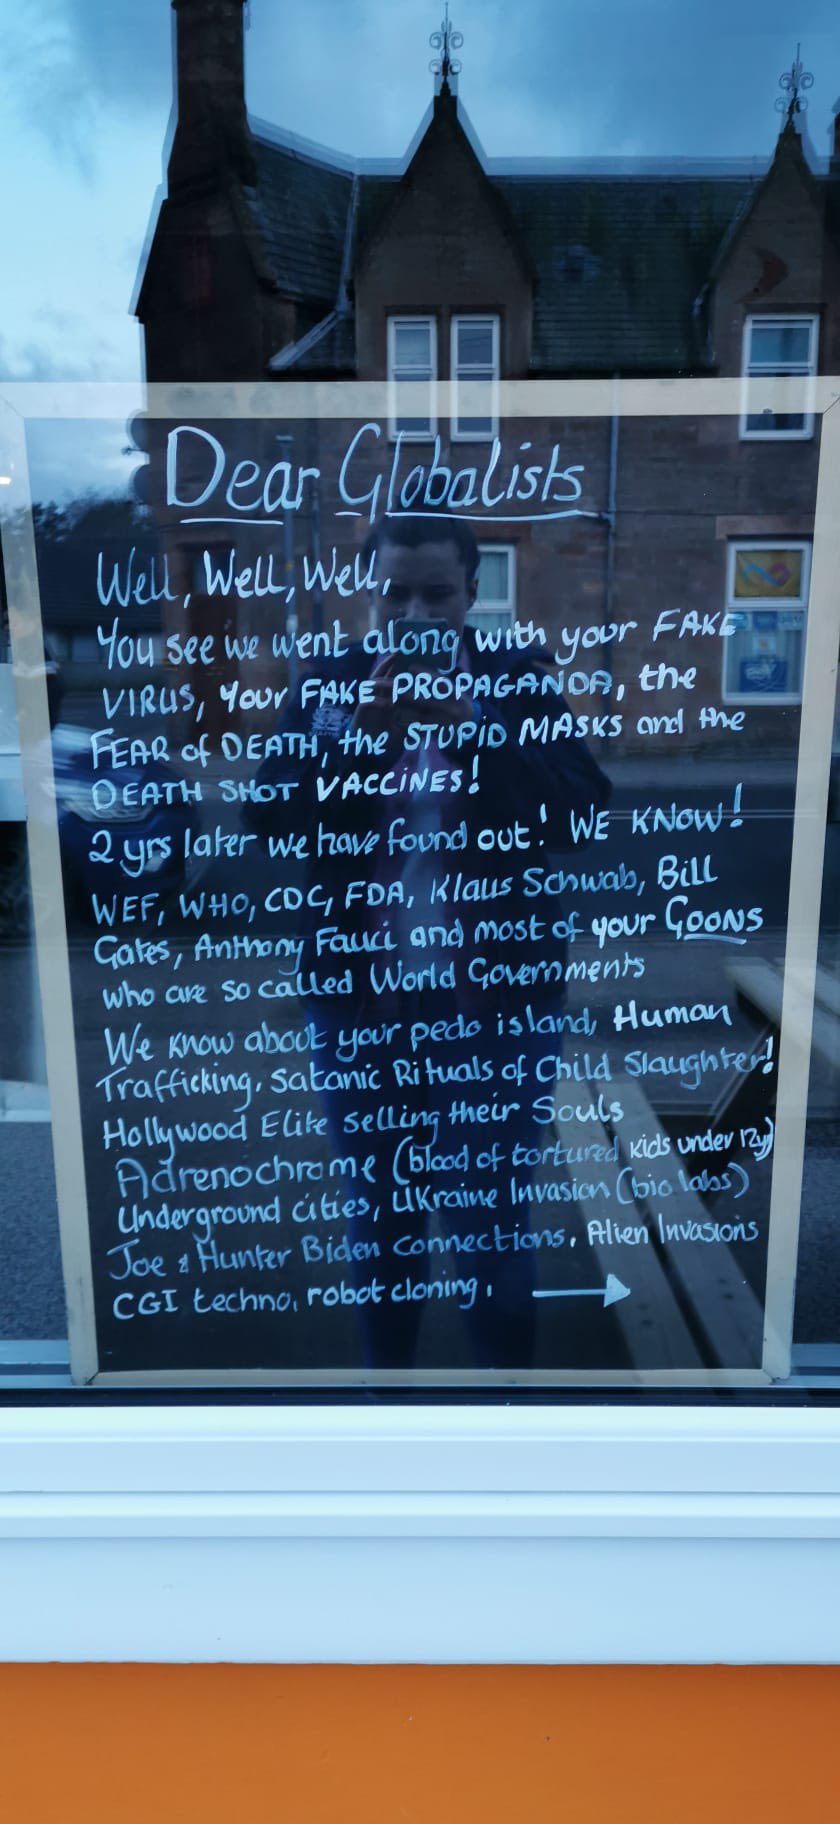 Dear Globalists
Well, Well, Well,
You see we went along with your FAKE
VIRUS, your FAKE PROPAGANDA, the
FEAR of DEATH, the STUPID MASKS and the
DEATH SHOT VACCINES!
2 yrs later we have found out! WE KNOW!
WEF, WHO, CDC, FDA, Klaus Schwab, Bill
Gates, Anthony Fauci and most of your GOONS
who are so called World Governments
We know about your pedo island, Human
Trafficking, Satanic Rituals of Child Slaughter!
Hollywood Elite selling their Souls
Adrenochrome (blood of tortured kids under 12y)
Underground cities, UKraine Invasion (bio labs)
Joe & Hunter Biden connections, Alien Invasions
CGI techno, robot cloning, →